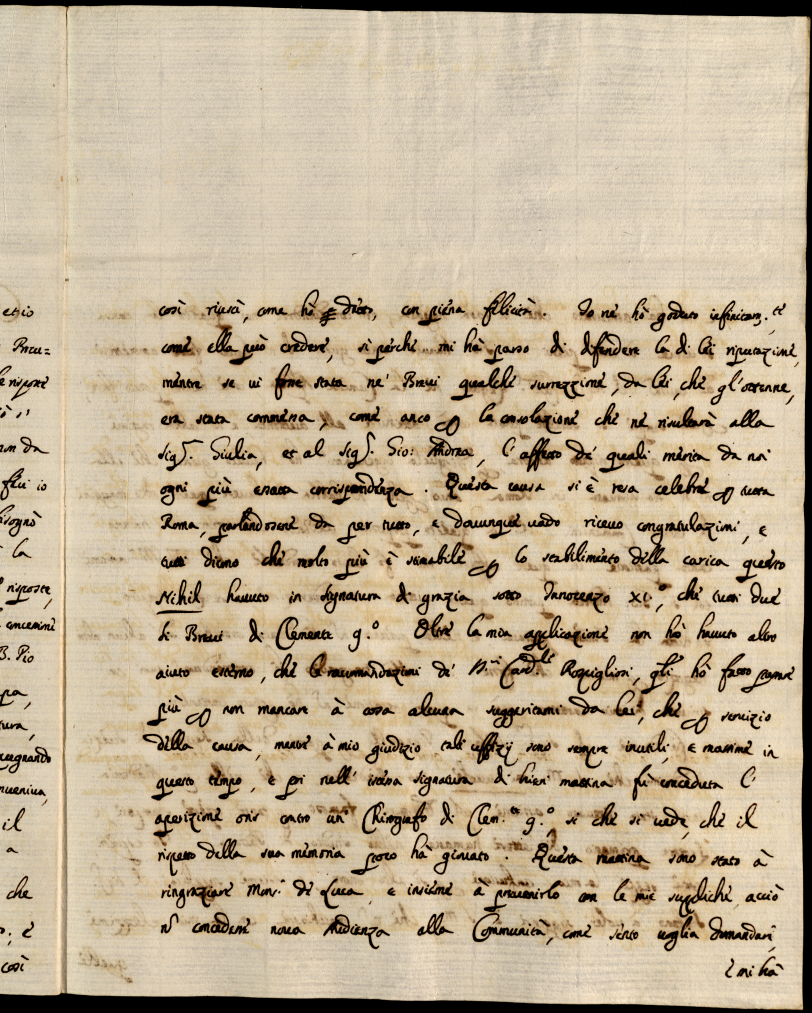 così riuscì, come hò detto, con piena felicità. Io ne hò goduto infinitam.te
come ella può credere, sì perche mi hà parso di difendere la di lei riputazione,
mentre se ui fosse stata ne' Breui qualche surrezzione, da lei, che gl'ottenne,
era stata commessa, come anco p la consolazione che ne risulterà alla
sig.ra Giulia, et al sig.r Gio: Andrea, l'affetto de quali merita da noi
ogni più esatta corrispondenza. Questa causa si è resa celebre p tutta
Roma, parlandosene da per tutto, e douunque uado riceuo congratulazioni, e
tutti dicono che molto più è stimabile p lo stabilimento della carica questo
Nihil hauuto in signatura di grazia sotto Innocenzo XI.o, che tutti due
li Breui di Clemente 9.o Oltre la mia applicazione non hò hauuto altro
aiuto esterno, che le raccomandazioni de' Card.li Rospigliosi, gli hò fatto
più p non mancare à cosa alcuna suggeritami da lei, che p seruizio
della causa, mentre à mio giudizio tali uffizij sono sempre inutili, e massime in
questo tempo, e poi nell' istessa signatura di hieri mattina fù conceduta l'
aperizione oris contro un' Chirografo di Clem.te 9.o, si che si uede, che il
rispetto della sua memoria poco hà giouato. Questa mattina sono stato à
ringraziare Mons.r de Luca, e insieme à preuenirlo con le mie suppliche, acciò
nō concedesse noua Audienza alla Communità, come sento uoglia domandare,
e mi hà
et io
Breu=
le risposte
non da
feci io
bisognò
la
risposte,
concessioni
B. Pio
pa,
tura,
pugnando
nueniua,
il
a
che
o; e
così